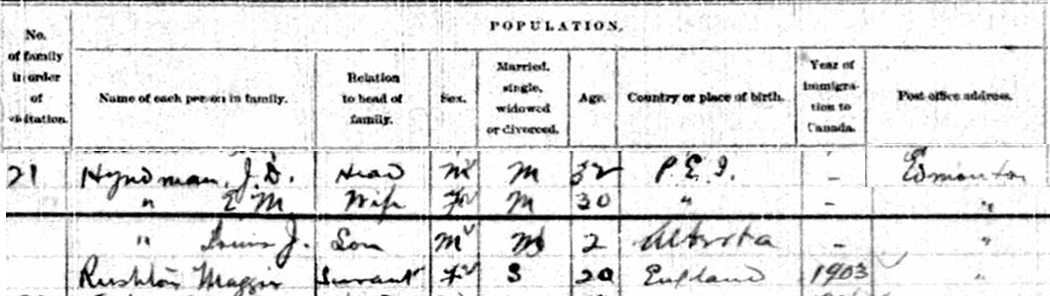 POPULATION.
No. of family in order of visitation.
Name of each person in family.
Relation to head of family.
Sex.
Married, single, widowed or divorced.
Age.
Country or place of birth.
Year of immigra-tion to Canada.
Post office address.
21 Hyndman, J. D. Head M M 32 P. E. I. - Edmonton
" E M Wife F M 30 " - "
" Louis J. Son M 2 Alberta - "
Rushton Maggie Servant F S 20 England 1903 "